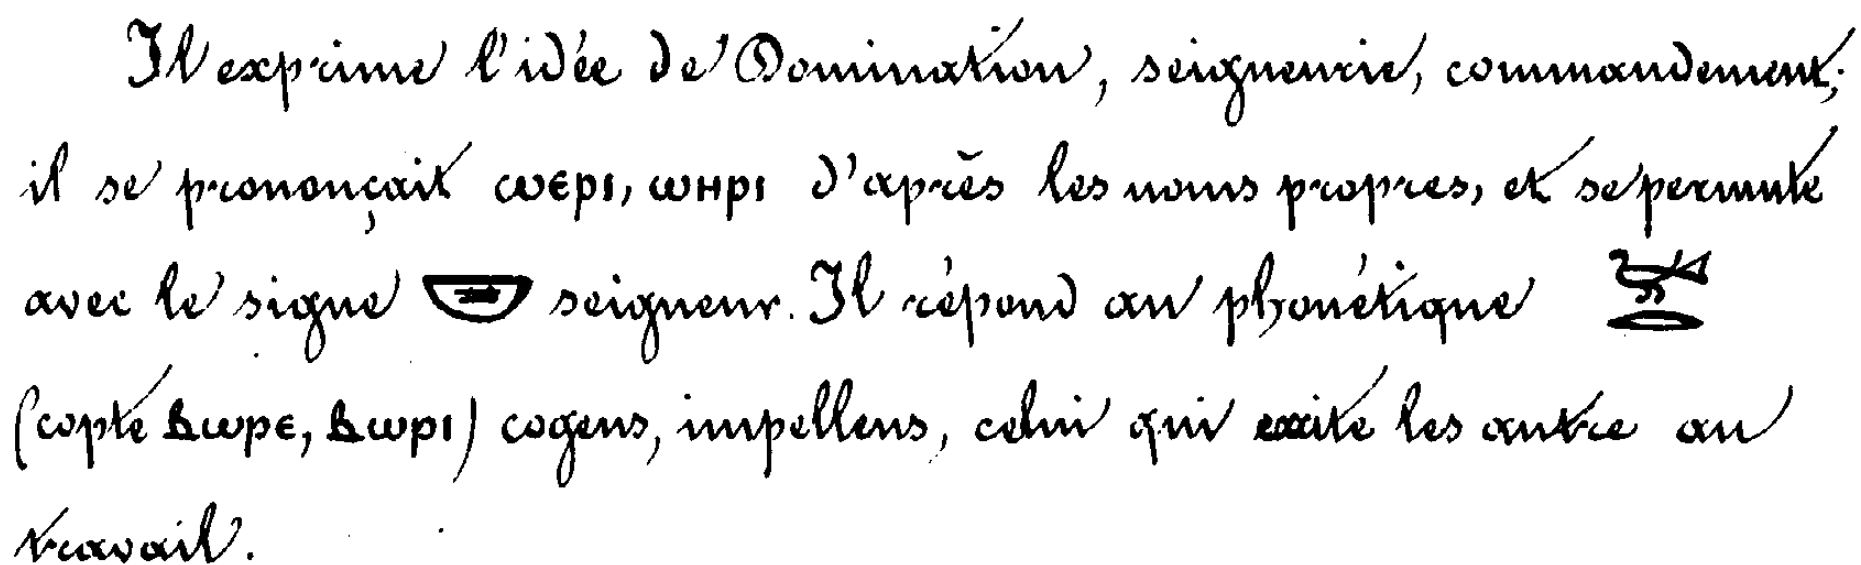 Il exprime l'idée de Domination, seigneurie, commandement;
il se prononçait ⲱⲉⲣⲓ, ⲱⲏⲣⲓ d'après les noms propres, et se permute
avec le signe seigneur. Il répond au phonétique
(copte ⲃⲱⲣⲉ, ⲃⲱⲣⲓ) cogens, impellens, celui qui excite les autre au
travail.